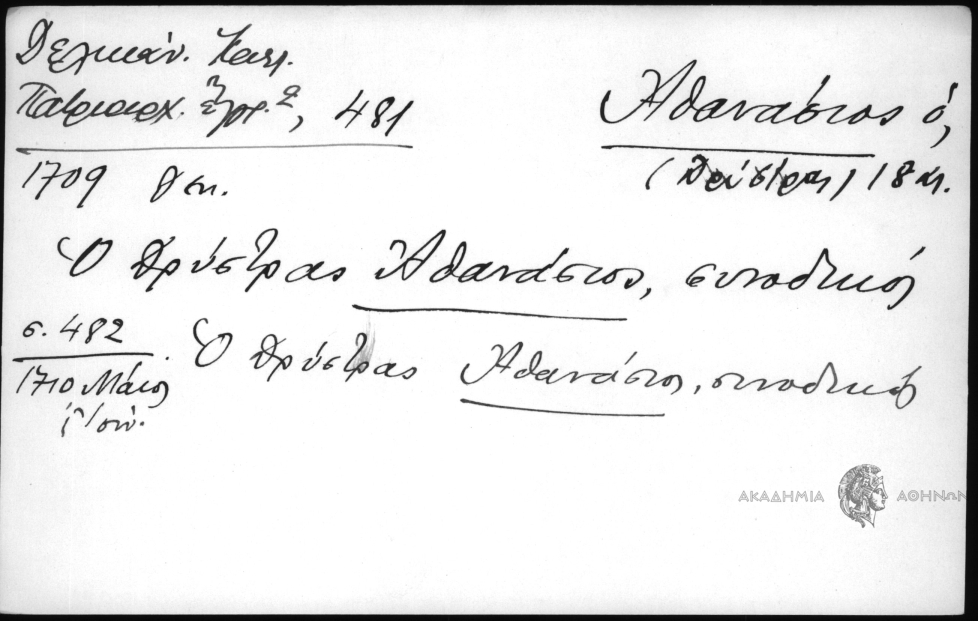 Δελικάν. Καλ.
Πατριαρχ. Ἔγγρ. 2, 481
Ἀθανάσιος ὁ,
(Δρύστρας) 18 αι.
1709 δεκ.
Ὁ Δρύστρας Ἀθανάσιος, συνοδικός
σ. 482
1710 Μάιος
Ὁ Δρύστρας Ἀθανάσιος, συνοδικός
ΑΚΑΔΗΜΙΑ ΑΘΗΝΩΝ